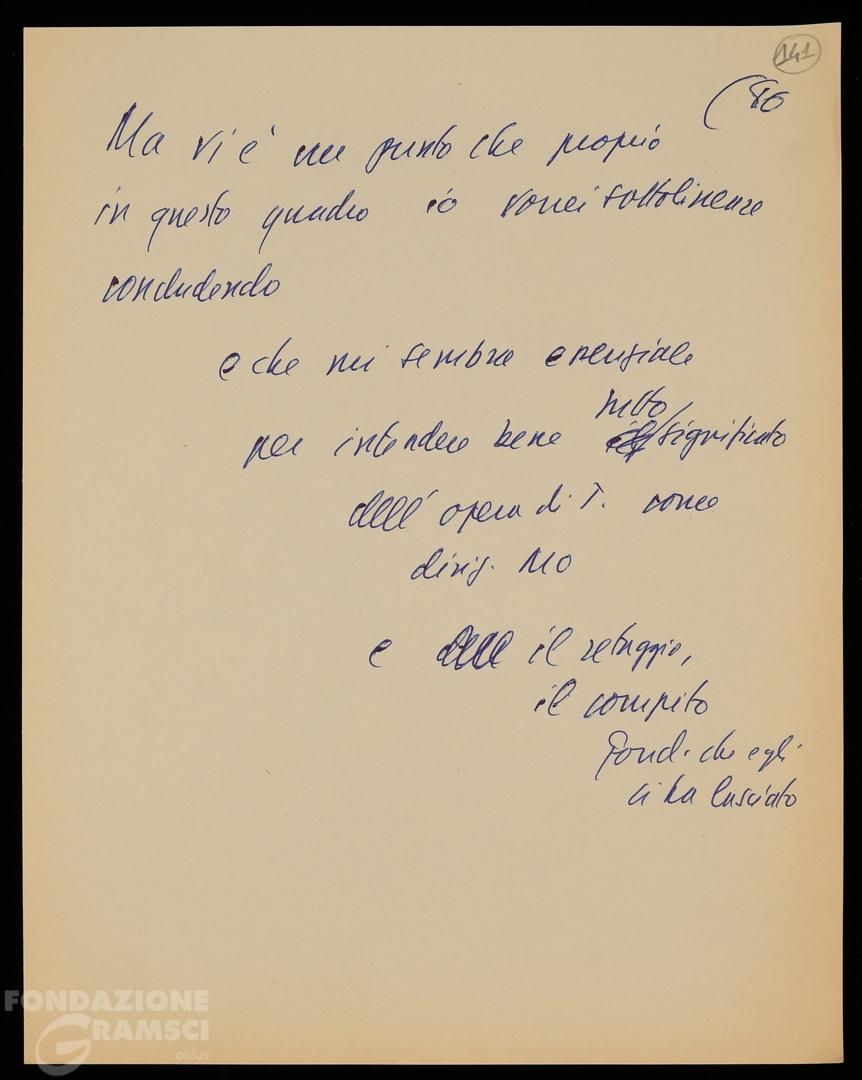 141
(86
Ma vi è un punto che proprio
in questo quadro io vorrei sottolineare
concludendo
e che mi sembra essenziale
tutto
per intendere bene il significato
dell'opera di T. come
dirig. MO
e dell il retaggio,
il compito
fond. che egli
ci ha lasciato
FONDAZIONE
GRAMSCI
onlus